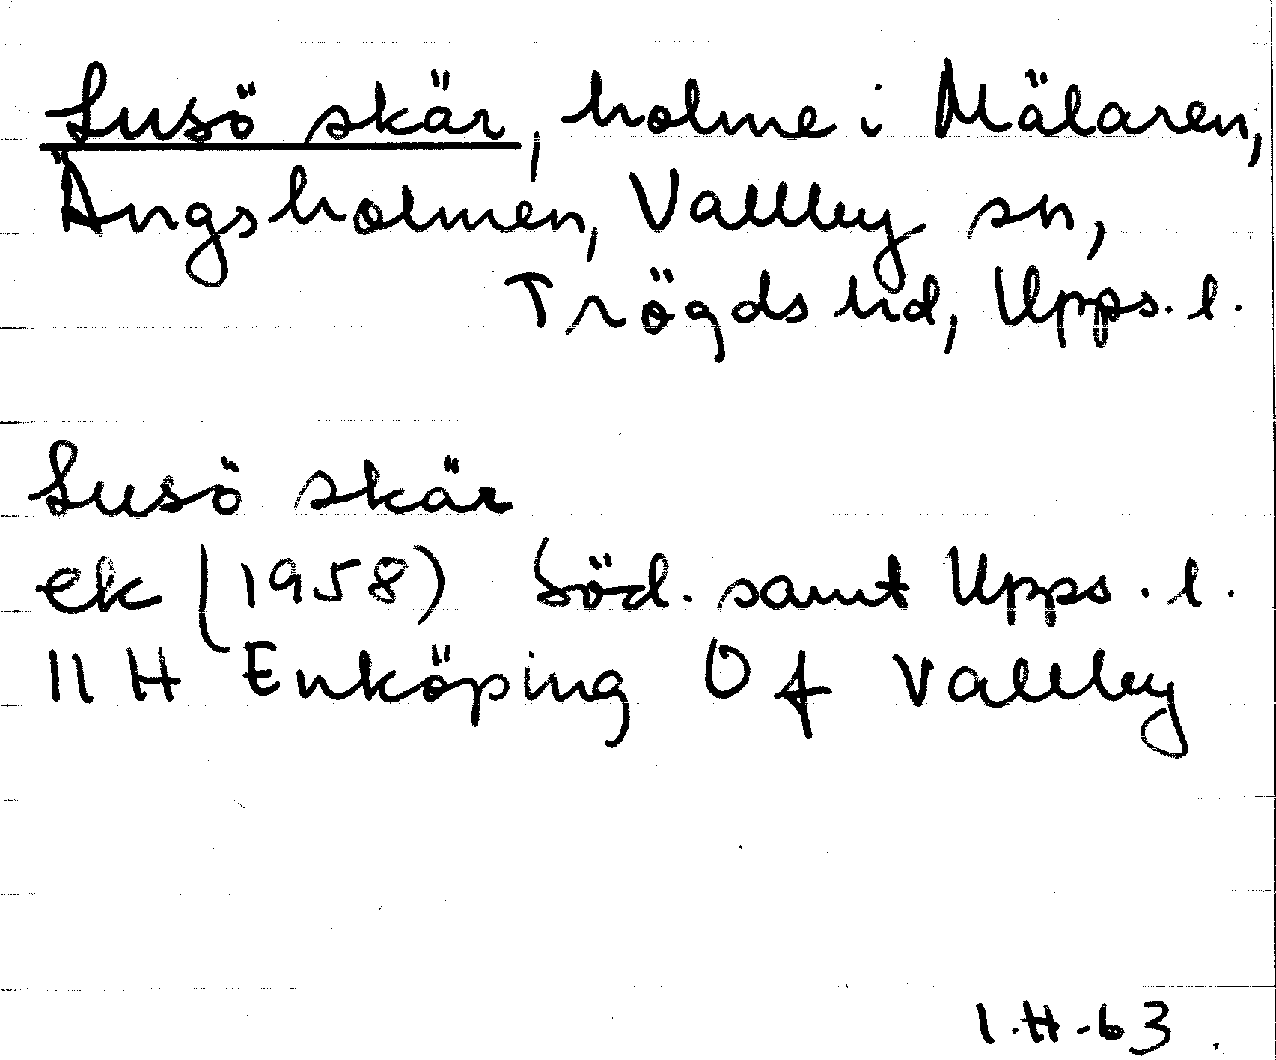 Lusö skär, holme i Mälaren,
Ängsholmen, Vallby sn,
Trögds hd, Upps. l.
Lusö skär
ek (1958) Söd. samt Upps. l.
11 H Enköping Of Vallby
1.H-63.